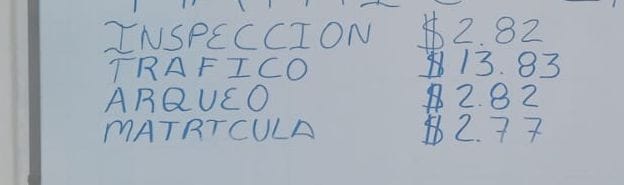 INSPECCION $2.82
TRAFICO $13.83
ARQUEO $2.82
MATRTCULA $2.77